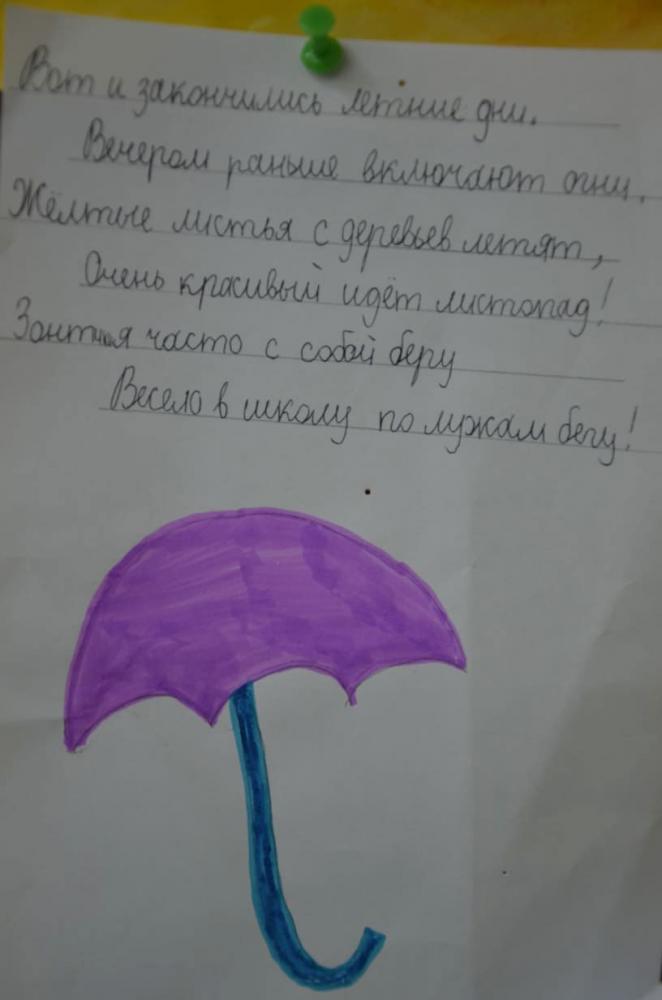 Вот и закончились летние дни.
Вечером раньше включают огни.
Жёлтые листья с деревьев летят,
Очень красивый идёт листопад!
часто с собой беру
Весело в школу по лужам бегу!